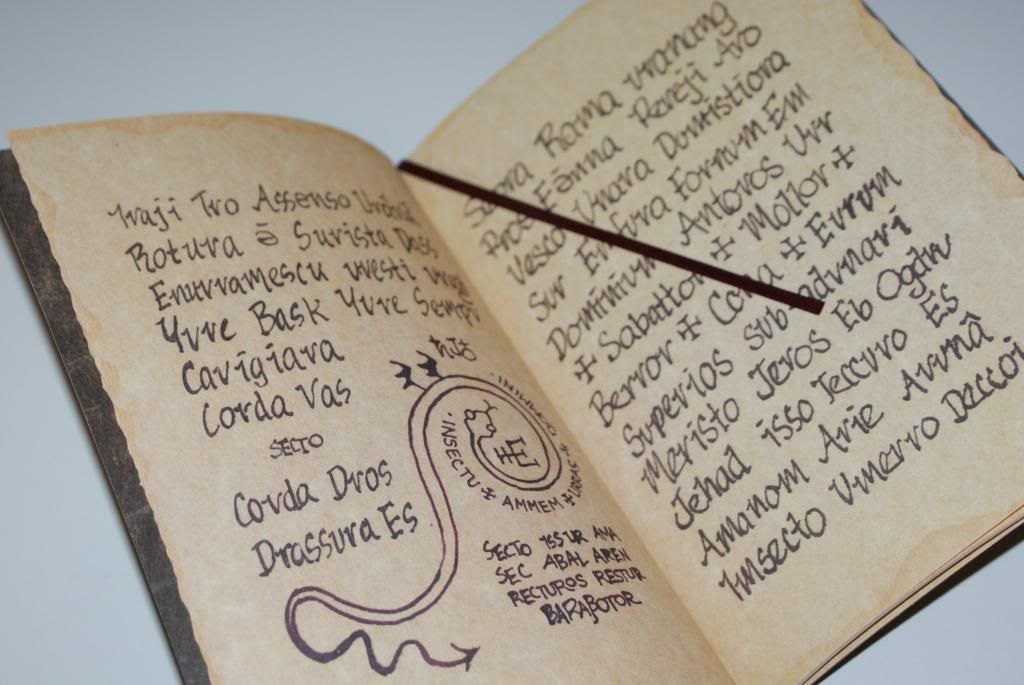 Traji Tro Assenso
Rotura ē Surista Dose
Enurvamescu vvesti
Yvre Bask Yvre Sempr
Cavigiara
Corda Vas
SECTO
Corda Dros
Drassura Es
INSECTU ✠ AMMEM ✠
SECTO ISSUR AMA
SEC ABAL AREN
RECTUROS RESTUR
BARABOTOR
Roma
Ēanna Reveji Avo
Vesco Vnara Domistiora
Sur Forrum Em
Antoros Uvr
✠ Sabattor ✠ Mollor ✠
Berror ✠ Cona ✠ Evrrum
Superios sub advnari
Meristo Jeros Eb Ogdru
Jehad isso Jeccuro ES
Amanom Arie Avrnâ
Imsecto Vmerro Daccoi